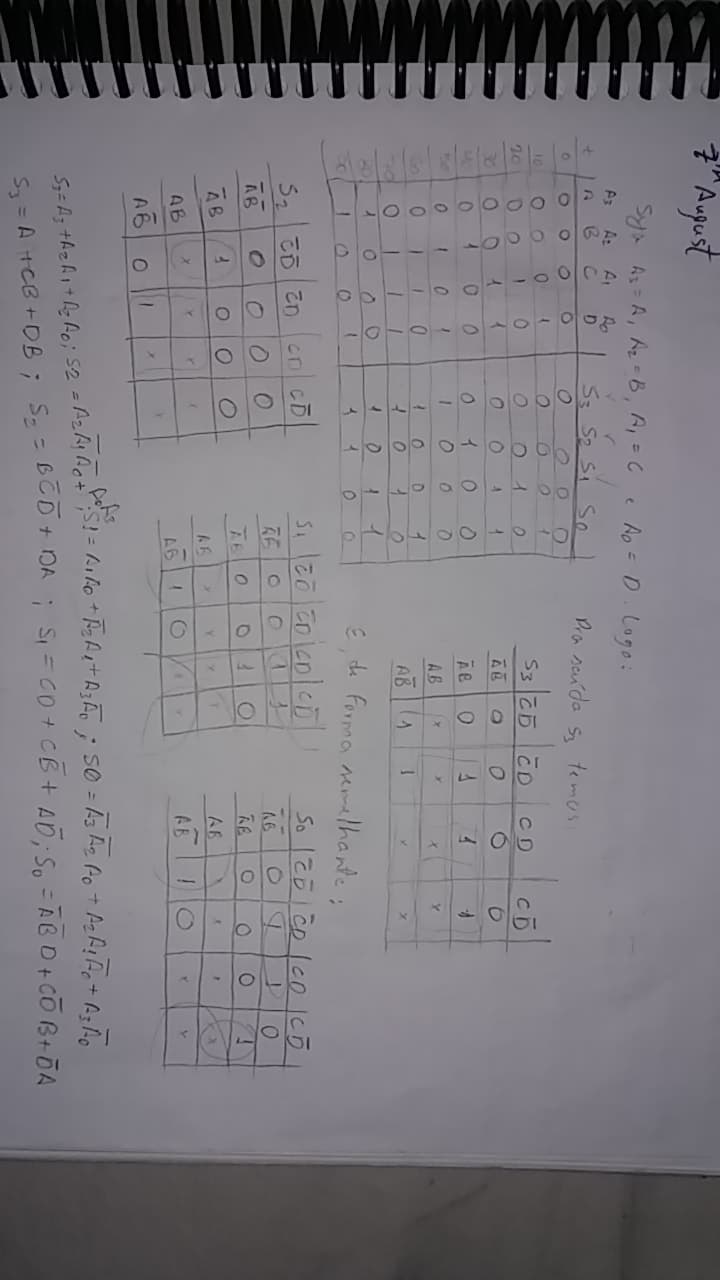 7th August
Seja A3 = A, A2 = B, A1 = C e A0 = D. Logo:
A3 A2 A1 A0
+ A B C D S3 S2 S1 S0
0 0 0 0 0 0 0 0 0
10 0 0 0 1 0 0 0 1
20 0 0 1 0 0 0 1 0
30 0 0 1 1 0 0 1 1
40 0 1 0 0 0 1 0 0
50 0 1 0 1 1 0 0 0
60 0 1 1 0 1 0 0 1
70 0 1 1 1 1 0 1 0
80 1 0 0 0 1 0 1 1
90 1 0 0 1 1 1 0 0
Pra saída S3 temos:
S3 C̅D̅ C̅D CD CD̅
A̅B̅ 0 0 0 0
A̅B 0 1 1 1
AB x x x x
AB̅ 1 1 x x
E, de forma semelhante:
S2 C̅D̅ C̅D CD CD̅
A̅B̅ 0 0 0 0
A̅B 1 0 0 0
AB x x x x
AB̅ 0 1 x x
S1 C̅D̅ C̅D CD CD̅
A̅B̅ 0 0 1 1
A̅B 0 0 1 0
AB x x x x
AB̅ 1 0 x x
S0 C̅D̅ C̅D CD CD̅
A̅B̅ 0 1 1 0
A̅B 0 0 0 1
AB x x x x
AB̅ 1 0 x x
S3 = A3 + A2A1 + A2A0; S2 = A2A̅1A̅0 + A0A3; S1 = A1A0 + A̅2A1 + A3A̅0; S0 = A̅3A̅2A0 + A2A1A̅0 + A3A̅0
S3 = A + CB + DB; S2 = BC̅D̅ + DA; S1 = CD + CB̅ + AD̅; S0 = A̅B̅D + CD̅B + D̅A